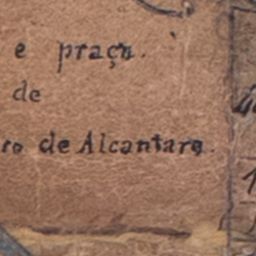 e praça.
de
ro de Alcantara.